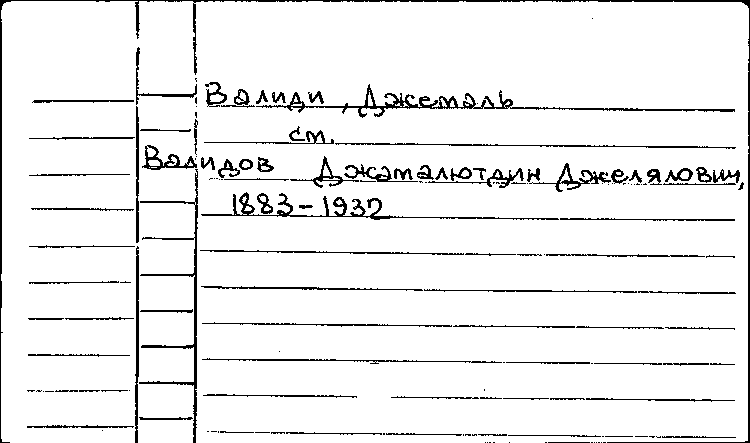 Валиди, Джемаль
см.
Валидов Джамалютдин Джелялович,
1883-1932